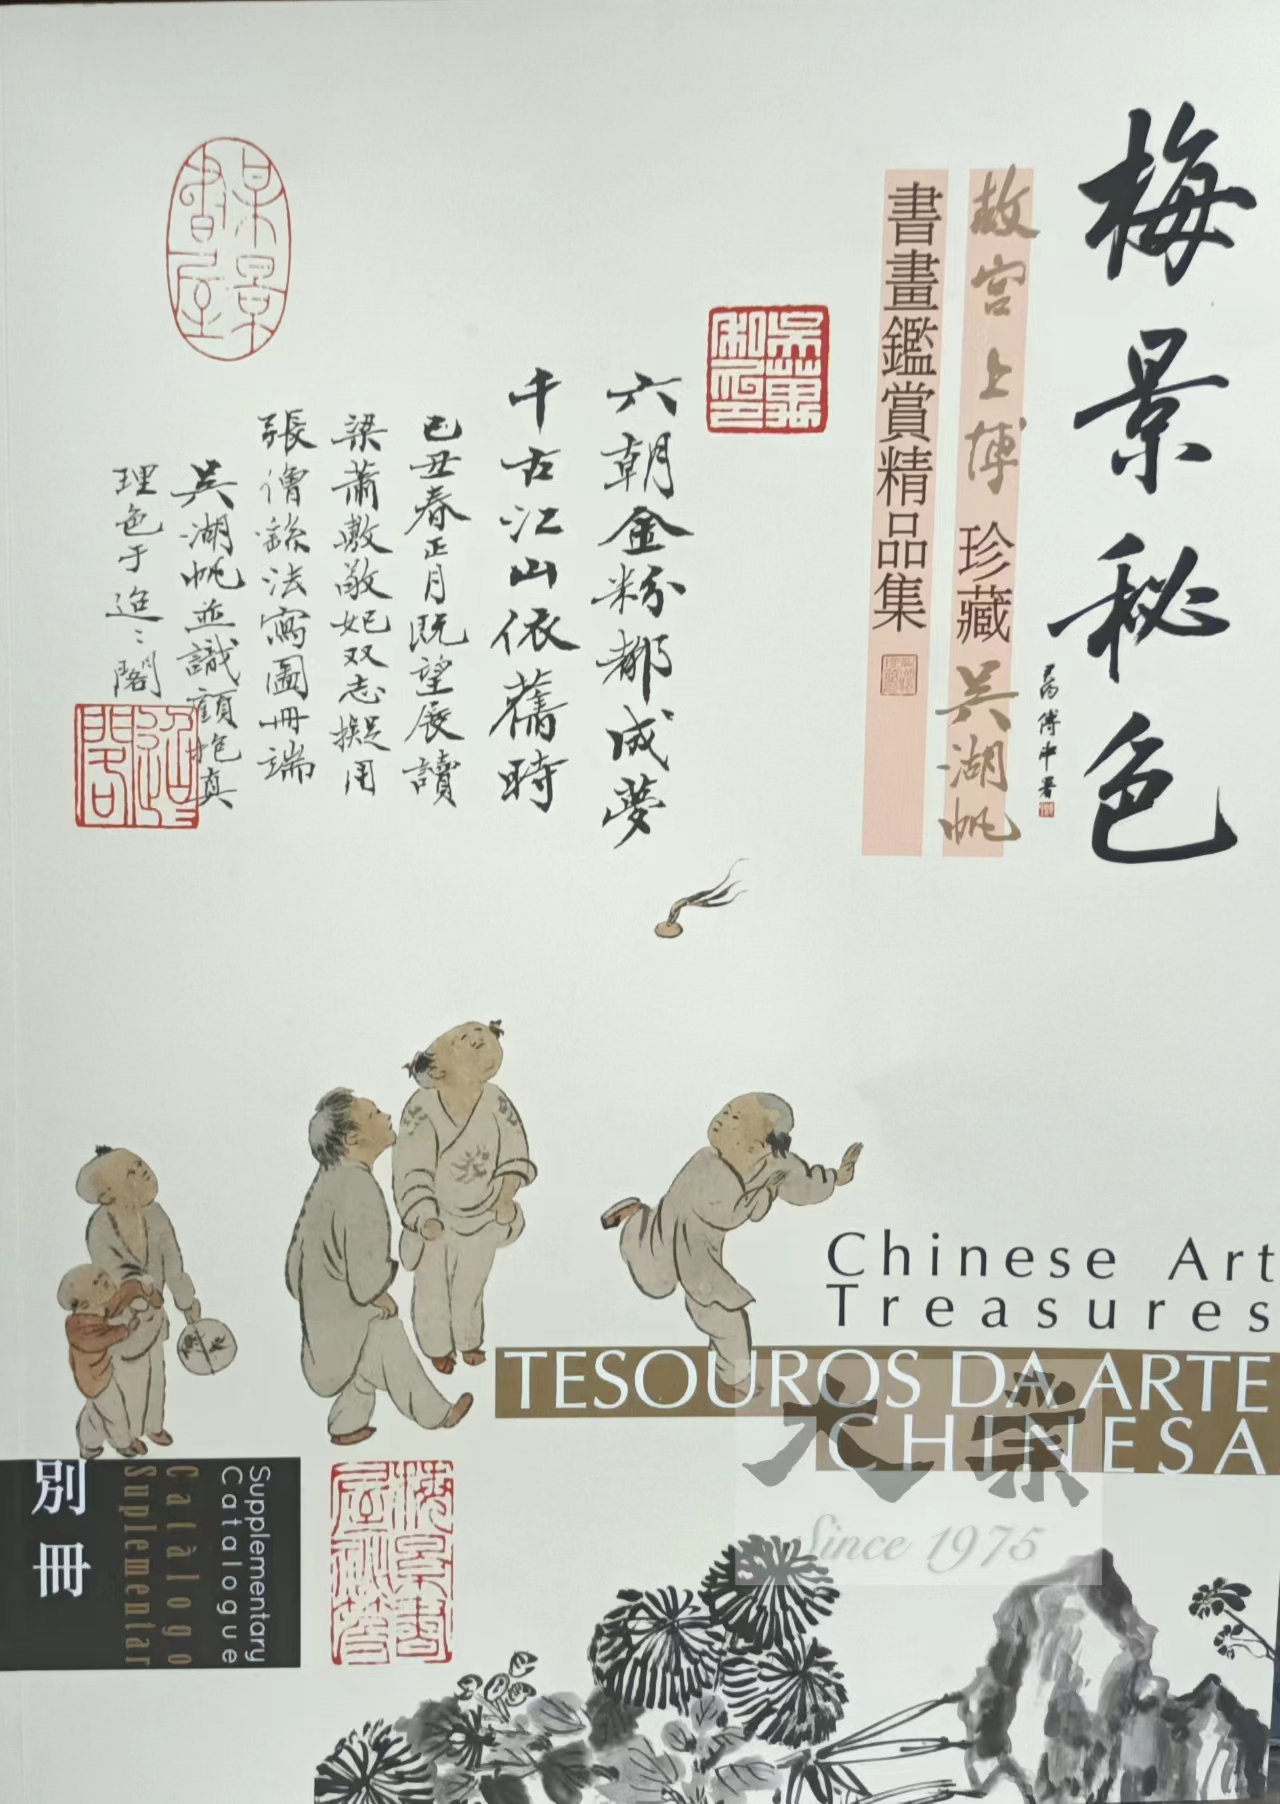 梅景秘色
傅申署
故宮上博珍藏吳湖帆
書畫鑑賞精品集
吳湖帆印
六朝金粉都成夢
千古江山依舊時
己丑春正月既望展讀
梁蕭敷敬妃双志擬用
張僧繇法寫圖冊端
吳湖帆並識顧抱真
理色于迢迢閣
梅景書屋
迢迢閣
Chinese Art
Treasures
TESOUROS DA ARTE
CHINESA
大崇
Since 1975
別冊
Catálogo
Suplementar
Supplementary
Catalogue
梅景書屋秘笈